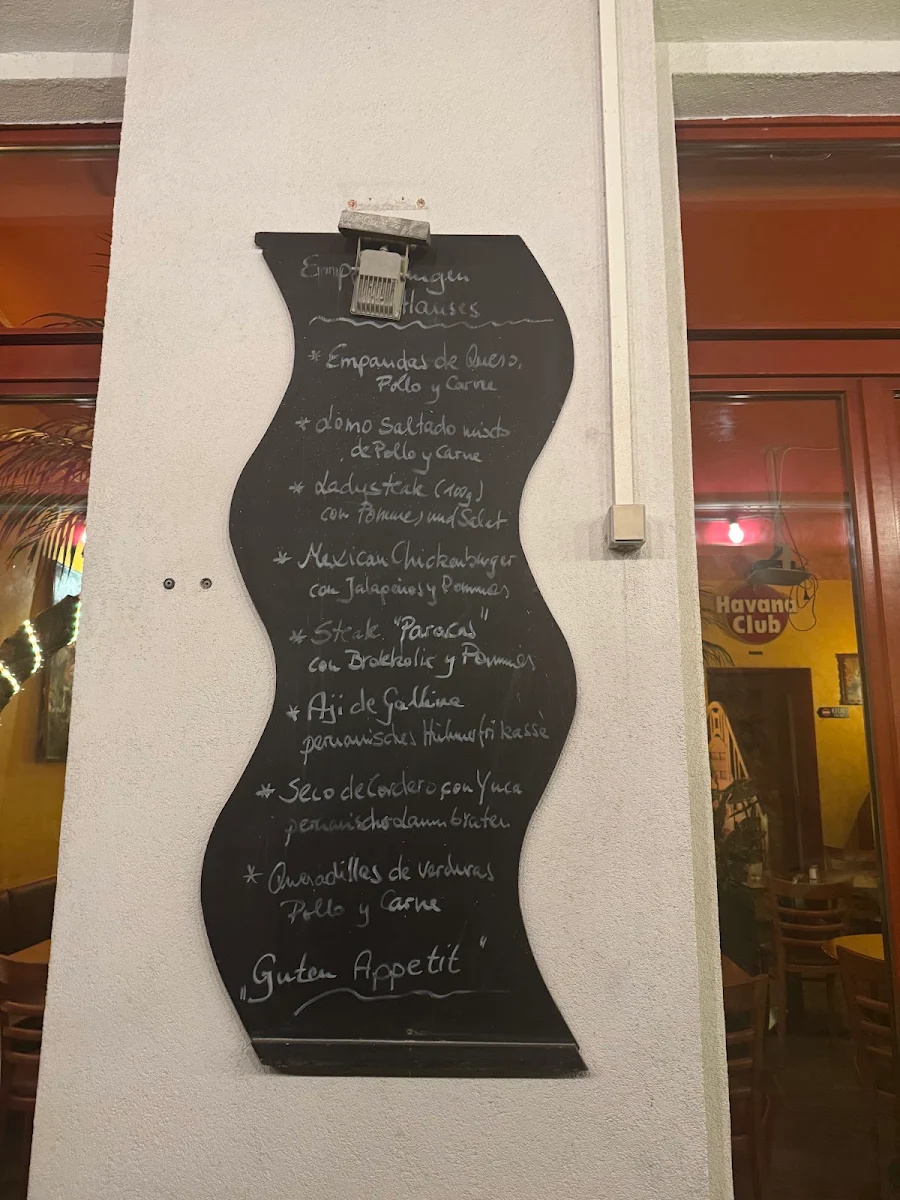 Hauses
* Empandas de Queso,
Pollo y Carne
* Lomo Saltado mixto
de Pollo y Carne
* Ladysteak (100g)
con Pommes und Salat
* Mexican Chickenburger
con Jalapeños y Pommes
* Steak "Paracas"
con Brokkolie y Pommes
* Aji de Gallina
peruanisches Hühnerfrikassè
* Seco de Cordero con Yuca
peruanischer Lammbraten
* Quesadillas de Verduras
Pollo y Carne
„Guten Appetit"
Havana
Club